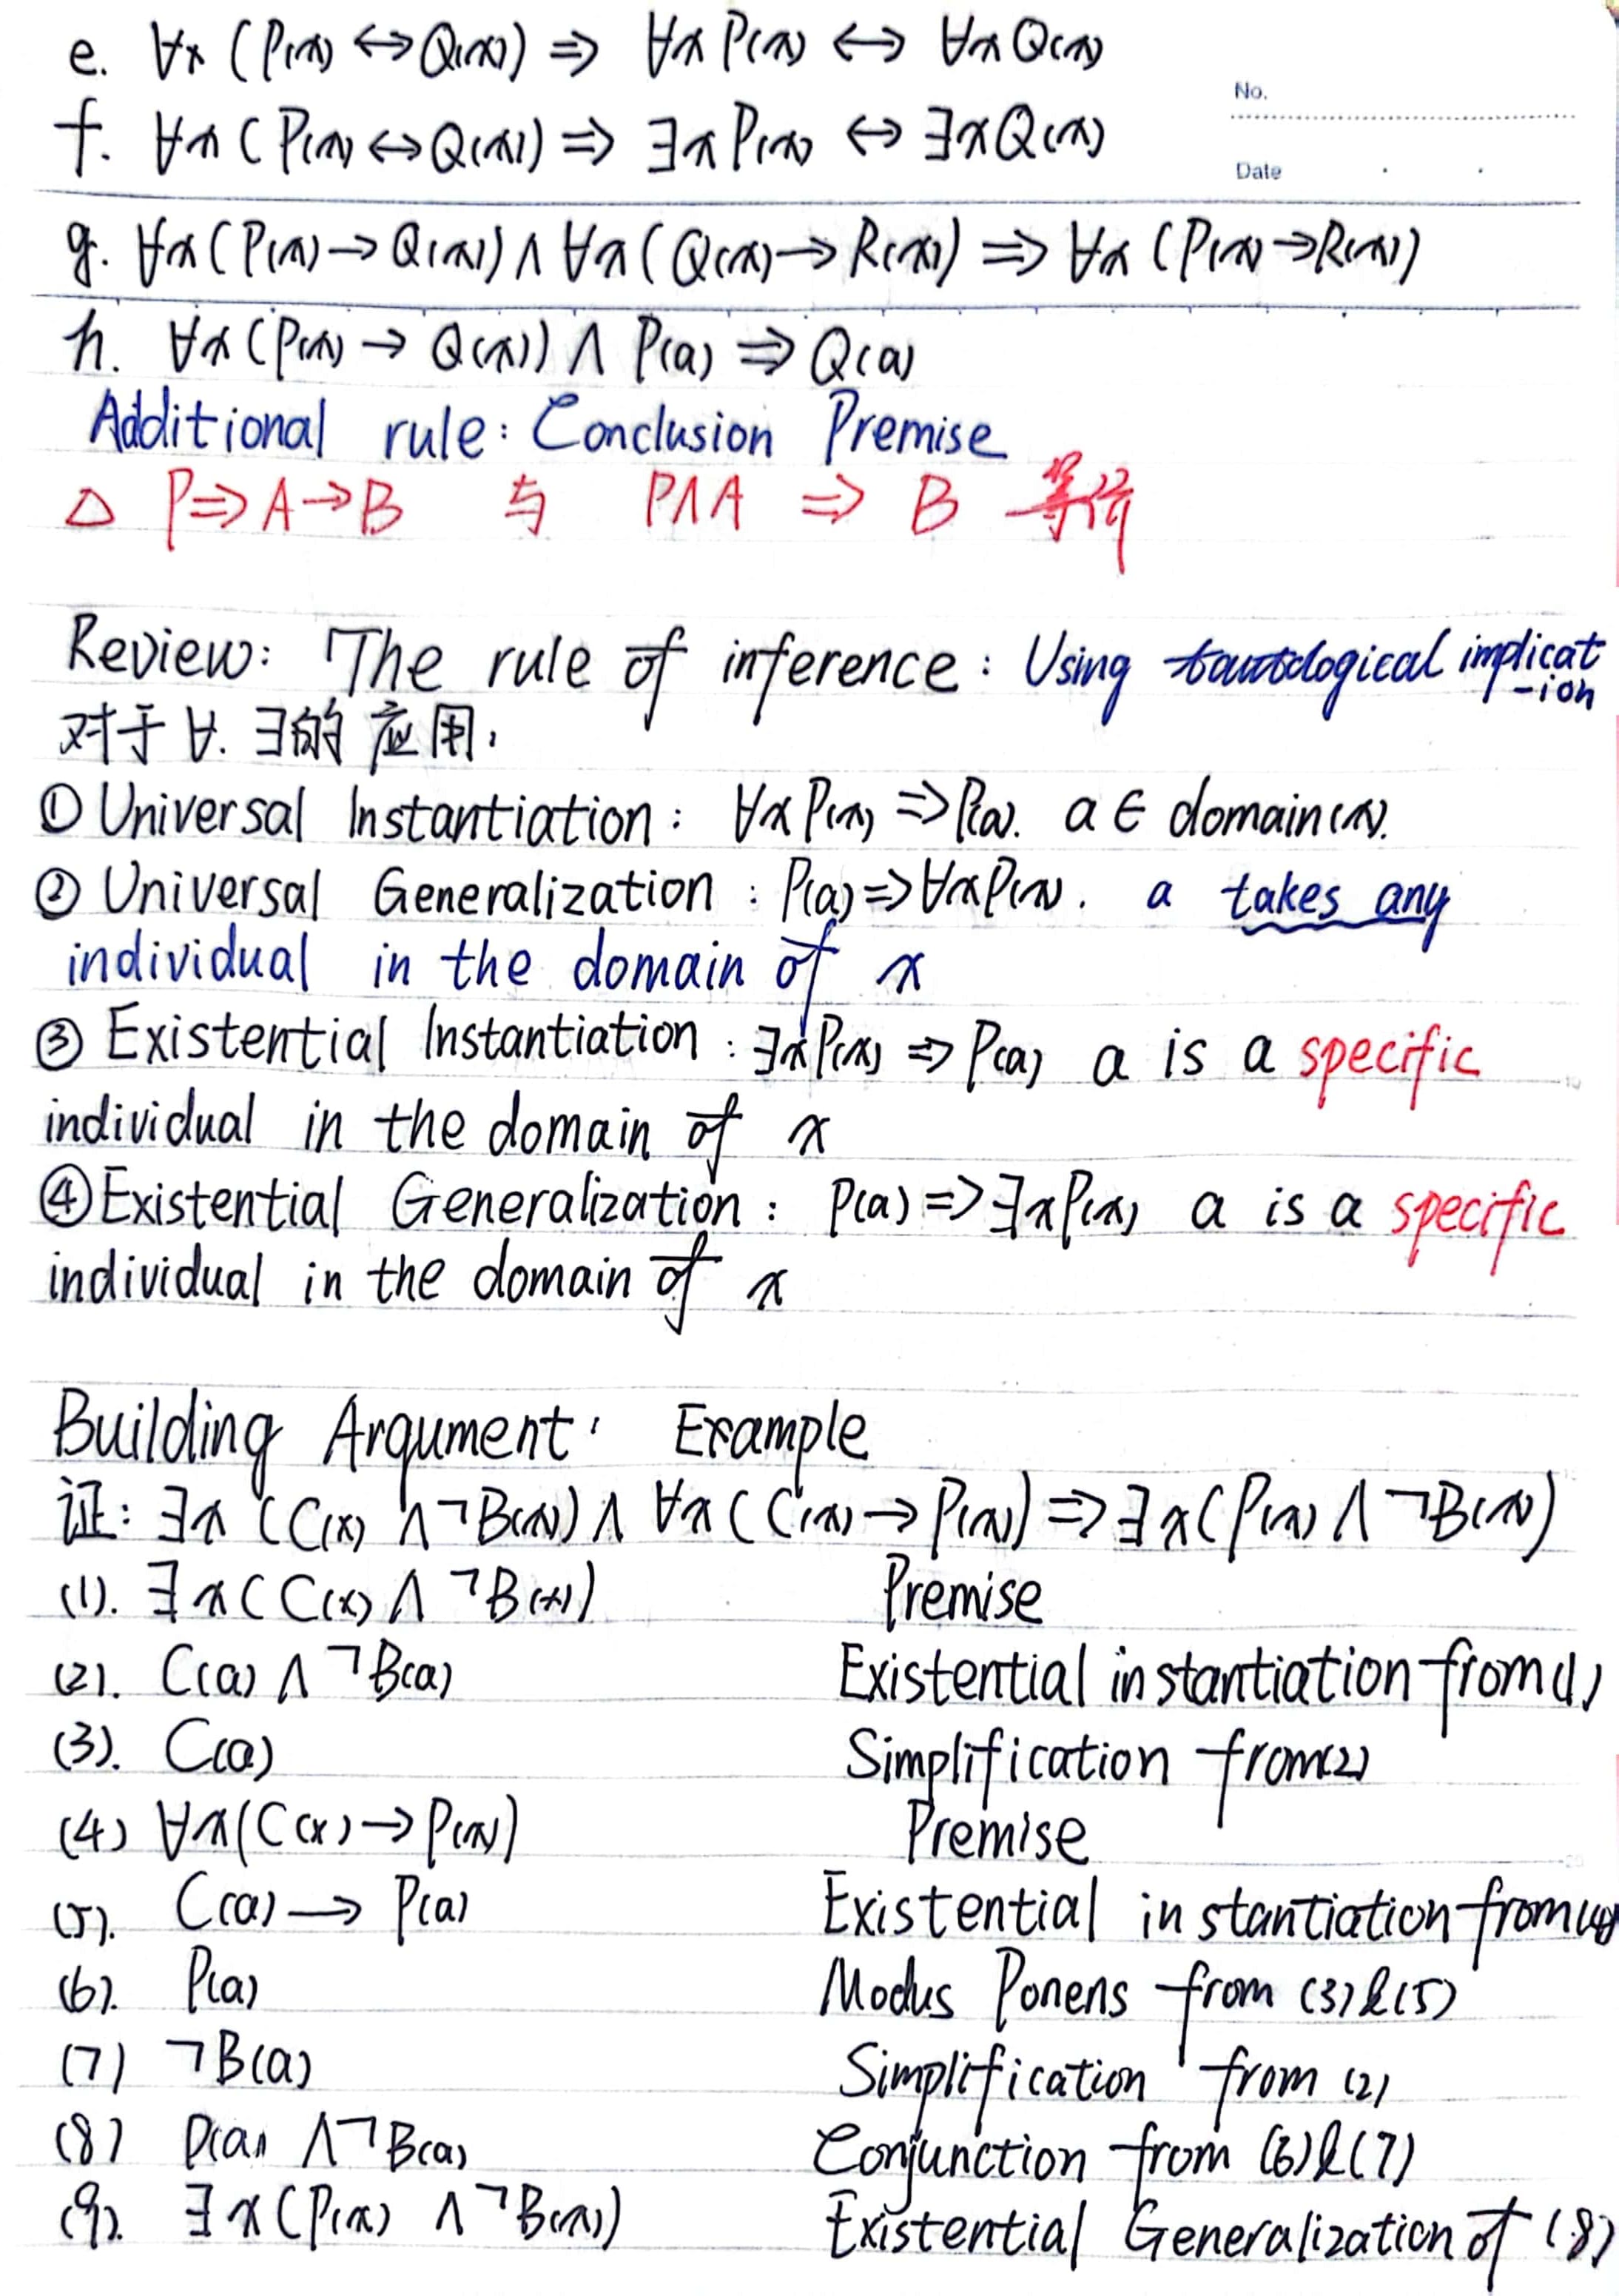 e. ∀x (P(x) ↔ Q(x)) ⇒ ∀x P(x) ↔ ∀x Q(x)
No.
f. ∀x (P(x) ↔ Q(x)) ⇒ ∃x P(x) ↔ ∃x Q(x)
Date
g. ∀x (P(x) → Q(x)) ∧ ∀x (Q(x) → R(x)) ⇒ ∀x (P(x) → R(x))
h. ∀x (P(x) → Q(x)) ∧ P(a) ⇒ Q(a)
Additional rule: Conclusion Premise
△ P ⇒ A → B 与 P∧A ⇒ B 等价
Review: The rule of inference: Using tautological implicat
-ion
对于 ∀. ∃的 应用.
① Universal Instantiation: ∀x P(x) ⇒ P(a). a ∈ domain(x).
② Universal Generalization: P(a) ⇒ ∀x P(x). a takes any
individual in the domain of x
③ Existential Instantiation: ∃x P(x) ⇒ P(a) a is a specific
individual in the domain of x
④ Existential Generalization: P(a) ⇒ ∃x P(x) a is a specific
individual in the domain of x
Building Argument: Example
证: ∃x (C(x) ∧ ¬B(x)) ∧ ∀x (C(x) → P(x)) ⇒ ∃x (P(x) ∧ ¬B(x))
(1). ∃x (C(x) ∧ ¬B(x)) Premise
(2). C(a) ∧ ¬B(a) Existential instantiation from (1)
(3). C(a) Simplification from (2)
(4) ∀x (C(x) → P(x)) Premise
(5). C(a) → P(a) Existential instantiation from (4)
(6). P(a) Modus Ponens from (3) & (5)
(7) ¬B(a) Simplification from (2)
(8) P(a) ∧ ¬B(a) Conjunction from (6) & (7)
(9). ∃x (P(x) ∧ ¬B(x)) Existential Generalization of (8)